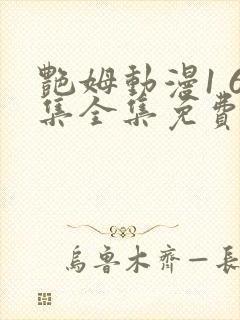 艷姆動漫1 6
集全集免費
烏魯木齊一長